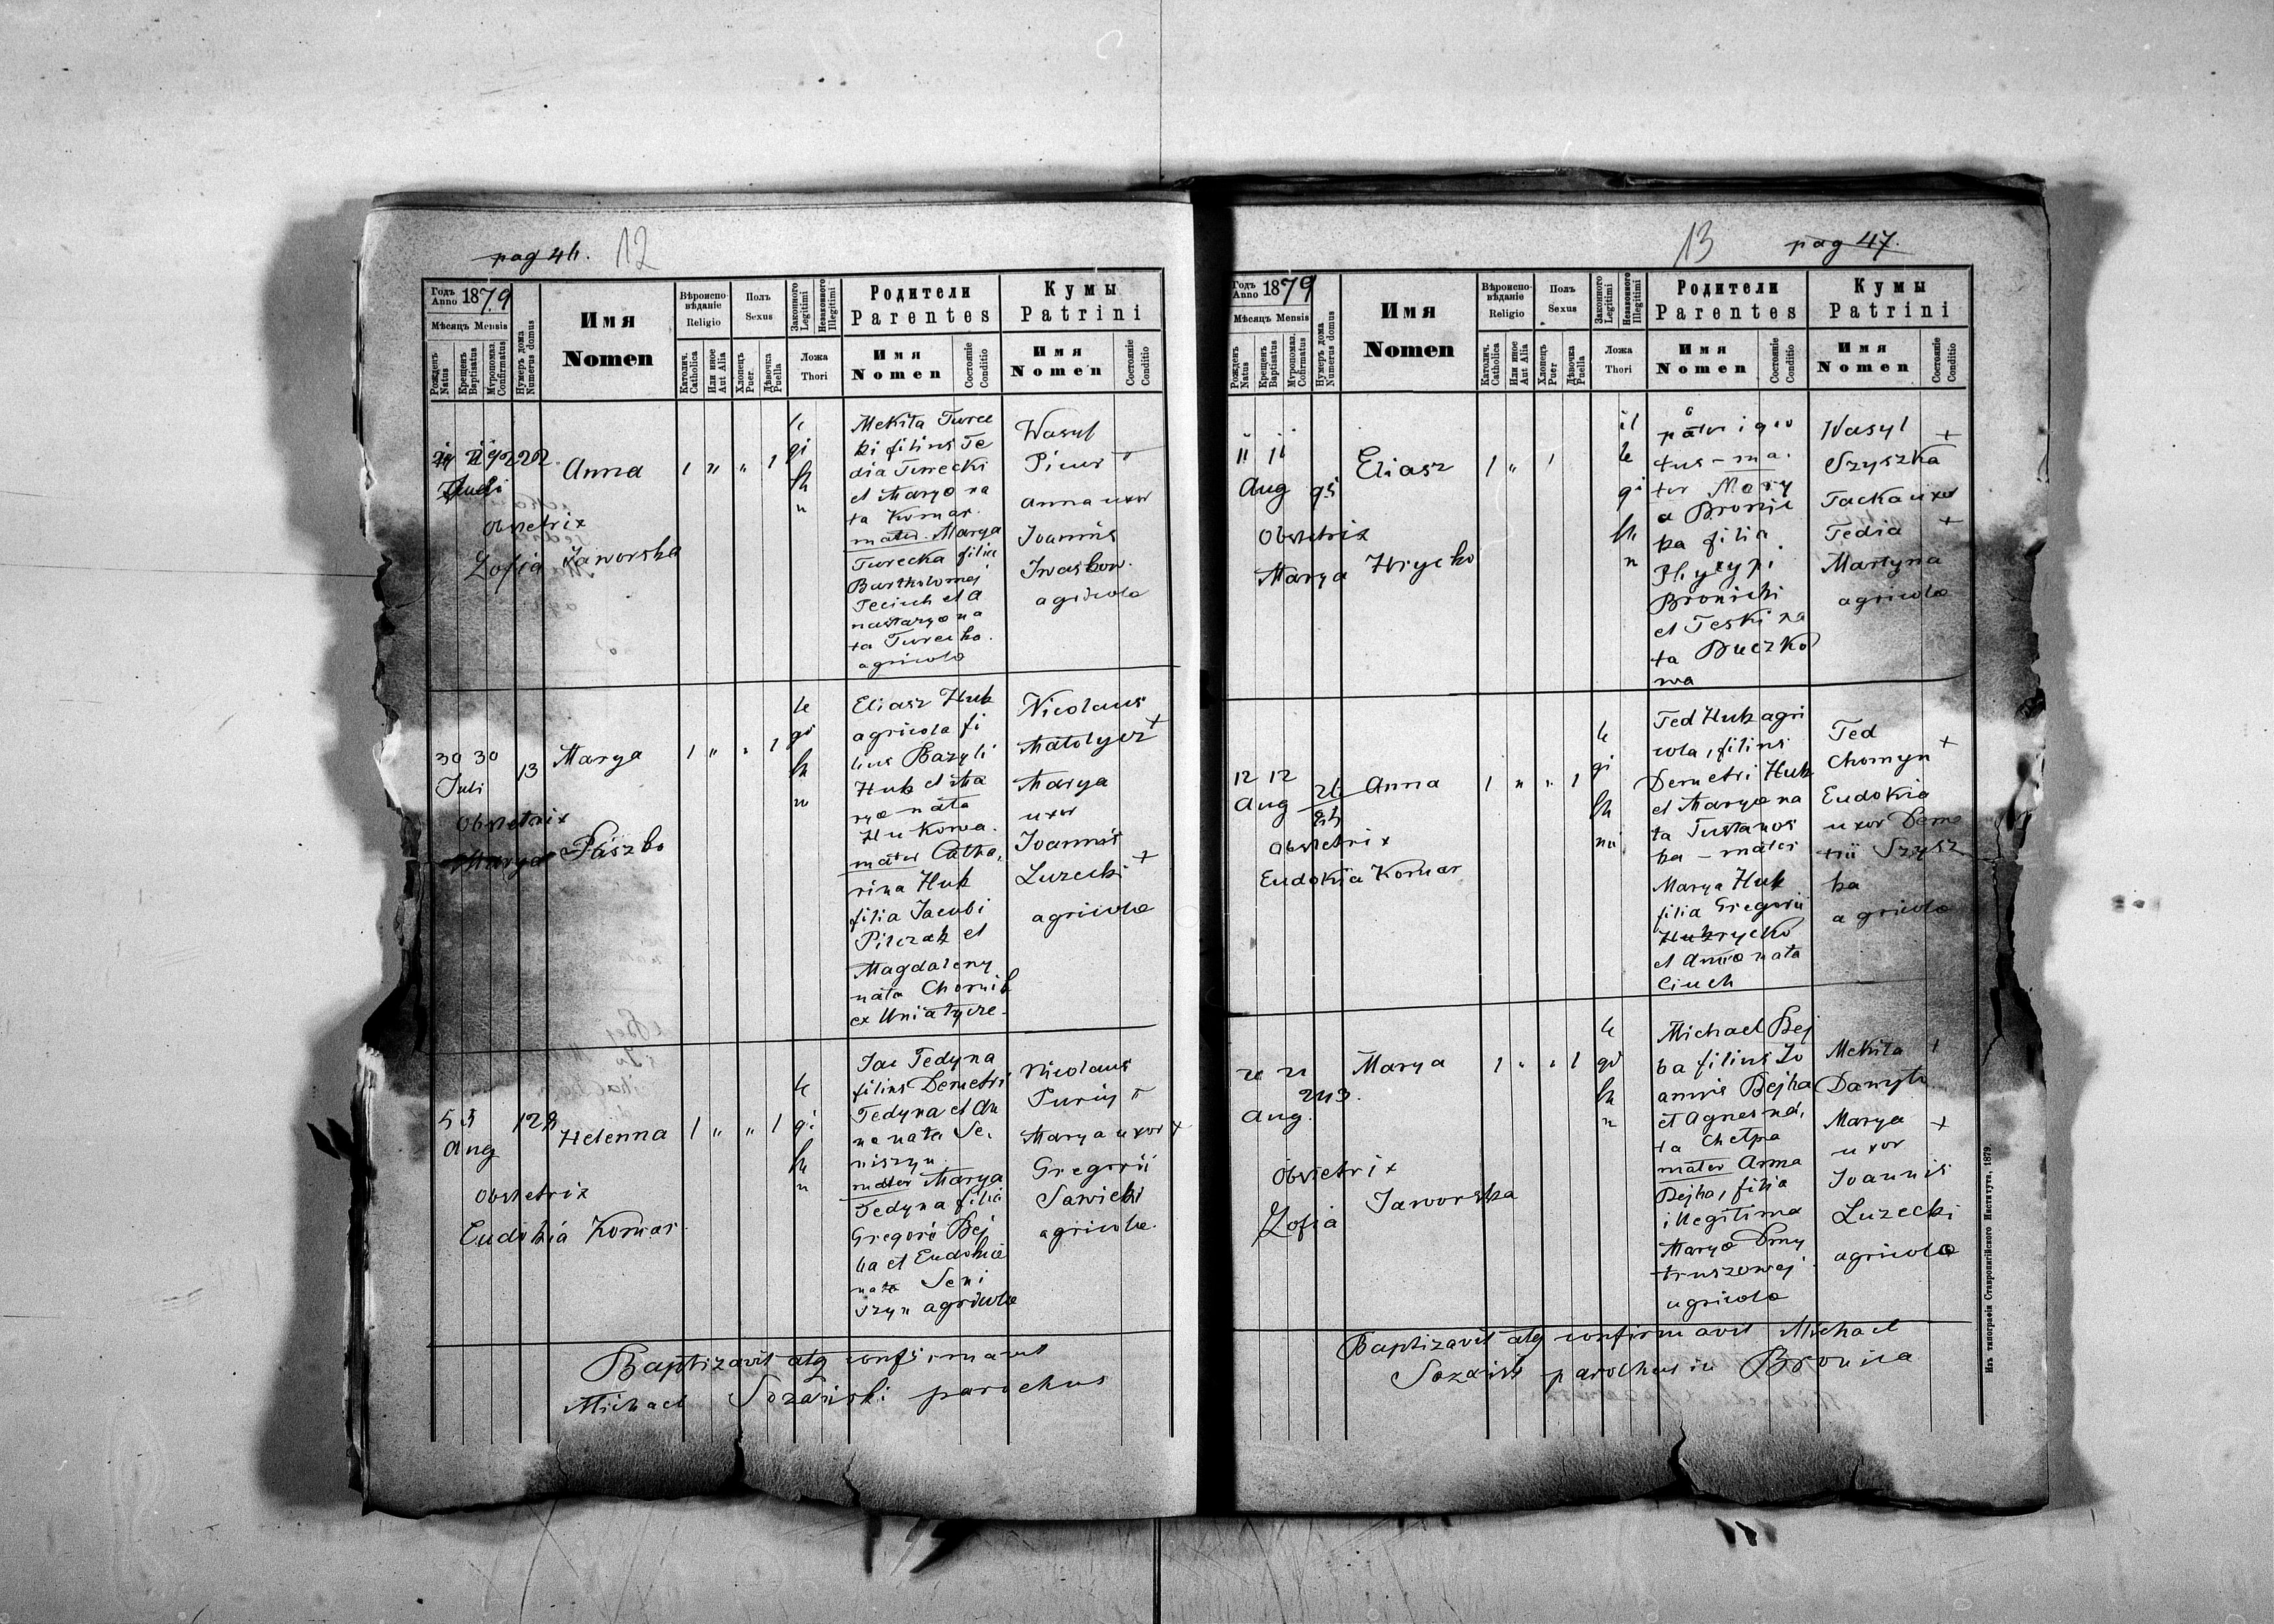 pag 46. 12
Годъ Anno 1879
Мѣсяцъ Mensis
Рожденъ Natus
Крещенъ Baptisatus
Муропомаз. Confirmatus
Нумеръ дома Numerus domus
Имя
Nomen
Вѣроиспо-
вѣданіе
Religio
Католич. Catholica
Или иное Aut Alia
Полъ
Sexus
Хлопецъ Puer
Дѣвочка Puella
Законного Legitimi
Незаконного Illegitimi
Ложа
Thori
Родители
Parentes
Имя
Nomen
Состояніе Conditio
Кумы
Patrini
Имя
Nomen
Состояніе Conditio
202
Anna
1 " " 1
le
gi
thi
Obstetrix
Zofia Jaworska
Mekita Turec
ki filius Fe
dia Turecki
et Maryæ na
ta Komar.
mater. Marya
Turecka filia
Bartholomej
Feciuch et A
nastaryæ na
ta Turecka.
agricolæ
Wasyl
Anna uxor
Joannis
Iwaskow.
agricolæ
30 30
Juli
13
Marya
1 " " 1
le
gi
thi
Obstetrix
Marya Paszko
Eliasz Huk
agricola fi
lius Bazyli
Huk et Ma
ryæ nata
Hukowa.
mater Catha,
rina Huk
filia Jacubi
Pilczak et
Magdaleny
nata Chornik
ex Uniatycze.
Nicolaus
Matolycz +
Marya
uxor
Joannis
Luzecki +
agricolæ
5 5
Aug
129
Helenna
1 " " 1
le
gi
thi
Obstetrix
Eudokia Komar
Jac Fedyna
filius Demetri
Fedyna et An
na nata Se,
niszyn
mater Marya
Fedyna filia
Gregori Bej
ba et Eudokia
nata Seni
szyn agricolæ
Nicolaus
Marya uxor +
Gregorii
Sawicki
agricolæ.
Baptizavit atq confirmavit
Michael Sozański parochus
13 pag 47.
Годъ Anno 1879
Мѣсяцъ Mensis
Рожденъ Natus
Крещенъ Baptisatus
Муропомаз. Cofirmatus
Нумеръ дома Numerus domus
Имя
Nomen
Вѣроиспо-
вѣданіе
Religio
Католич. Catholica
Или иное Aut Alia
Полъ
Sexus
Хлопецъ Puer
Дѣвочка Puella
Законного Legitimi
Незаконного Illegitimi
Ложа
Thori
Родители
Parentes
Имя
Nomen
Состояніе Conditio
Кумы
Patrini
Имя
Nomen
Состояніе Conditio
11 11
Aug 95
Eliasz
1 " 1
il
le
gi
thi
Obstetrix
Marya Hrycko
pater igno
tus - ma.
ter Mary
a Bronic
ka filia
Phylypi
Bronicki
et Teski na
ta Buczko
wa
Wasyl +
Szyszka
Tacka uxor
Fedia +
Martyna
agricolæ
12 12
Aug
Anna
1 " " 1
le
gi
thi
mi
Obstetrix
Eudokia Komar
Fed Huk agri
cola, filius
Demetri Huk
et Maryæ na
ta Tustanos
ka - mater
Marya Huk
filia Gregorii
Hukrycko
et Annæ nata
Ciuch
Fed
Chomyn +
Eudokia
uxor Deme
trii Szysz
ka
agricolæ
Aug.
243.
Marya
1 " " 1
le
gi
thi
Obstetrix
Zofia Jaworska
Michael Bej
ba filius Jo
annis Bejba
et Agnes na,
ta Chelpa
mater Anna
Bejba, filia
illegitima
Maryæ Dmy
truszowej
agricolæ
Mekita +
Danyło
Marya +
uxor
Joannis
Luzecki
agricolæ
Baptizavit atq confirmavit Michael
Sozański parochus in Bronica
Изъ типографіи Ставропигійского Института, 1879.